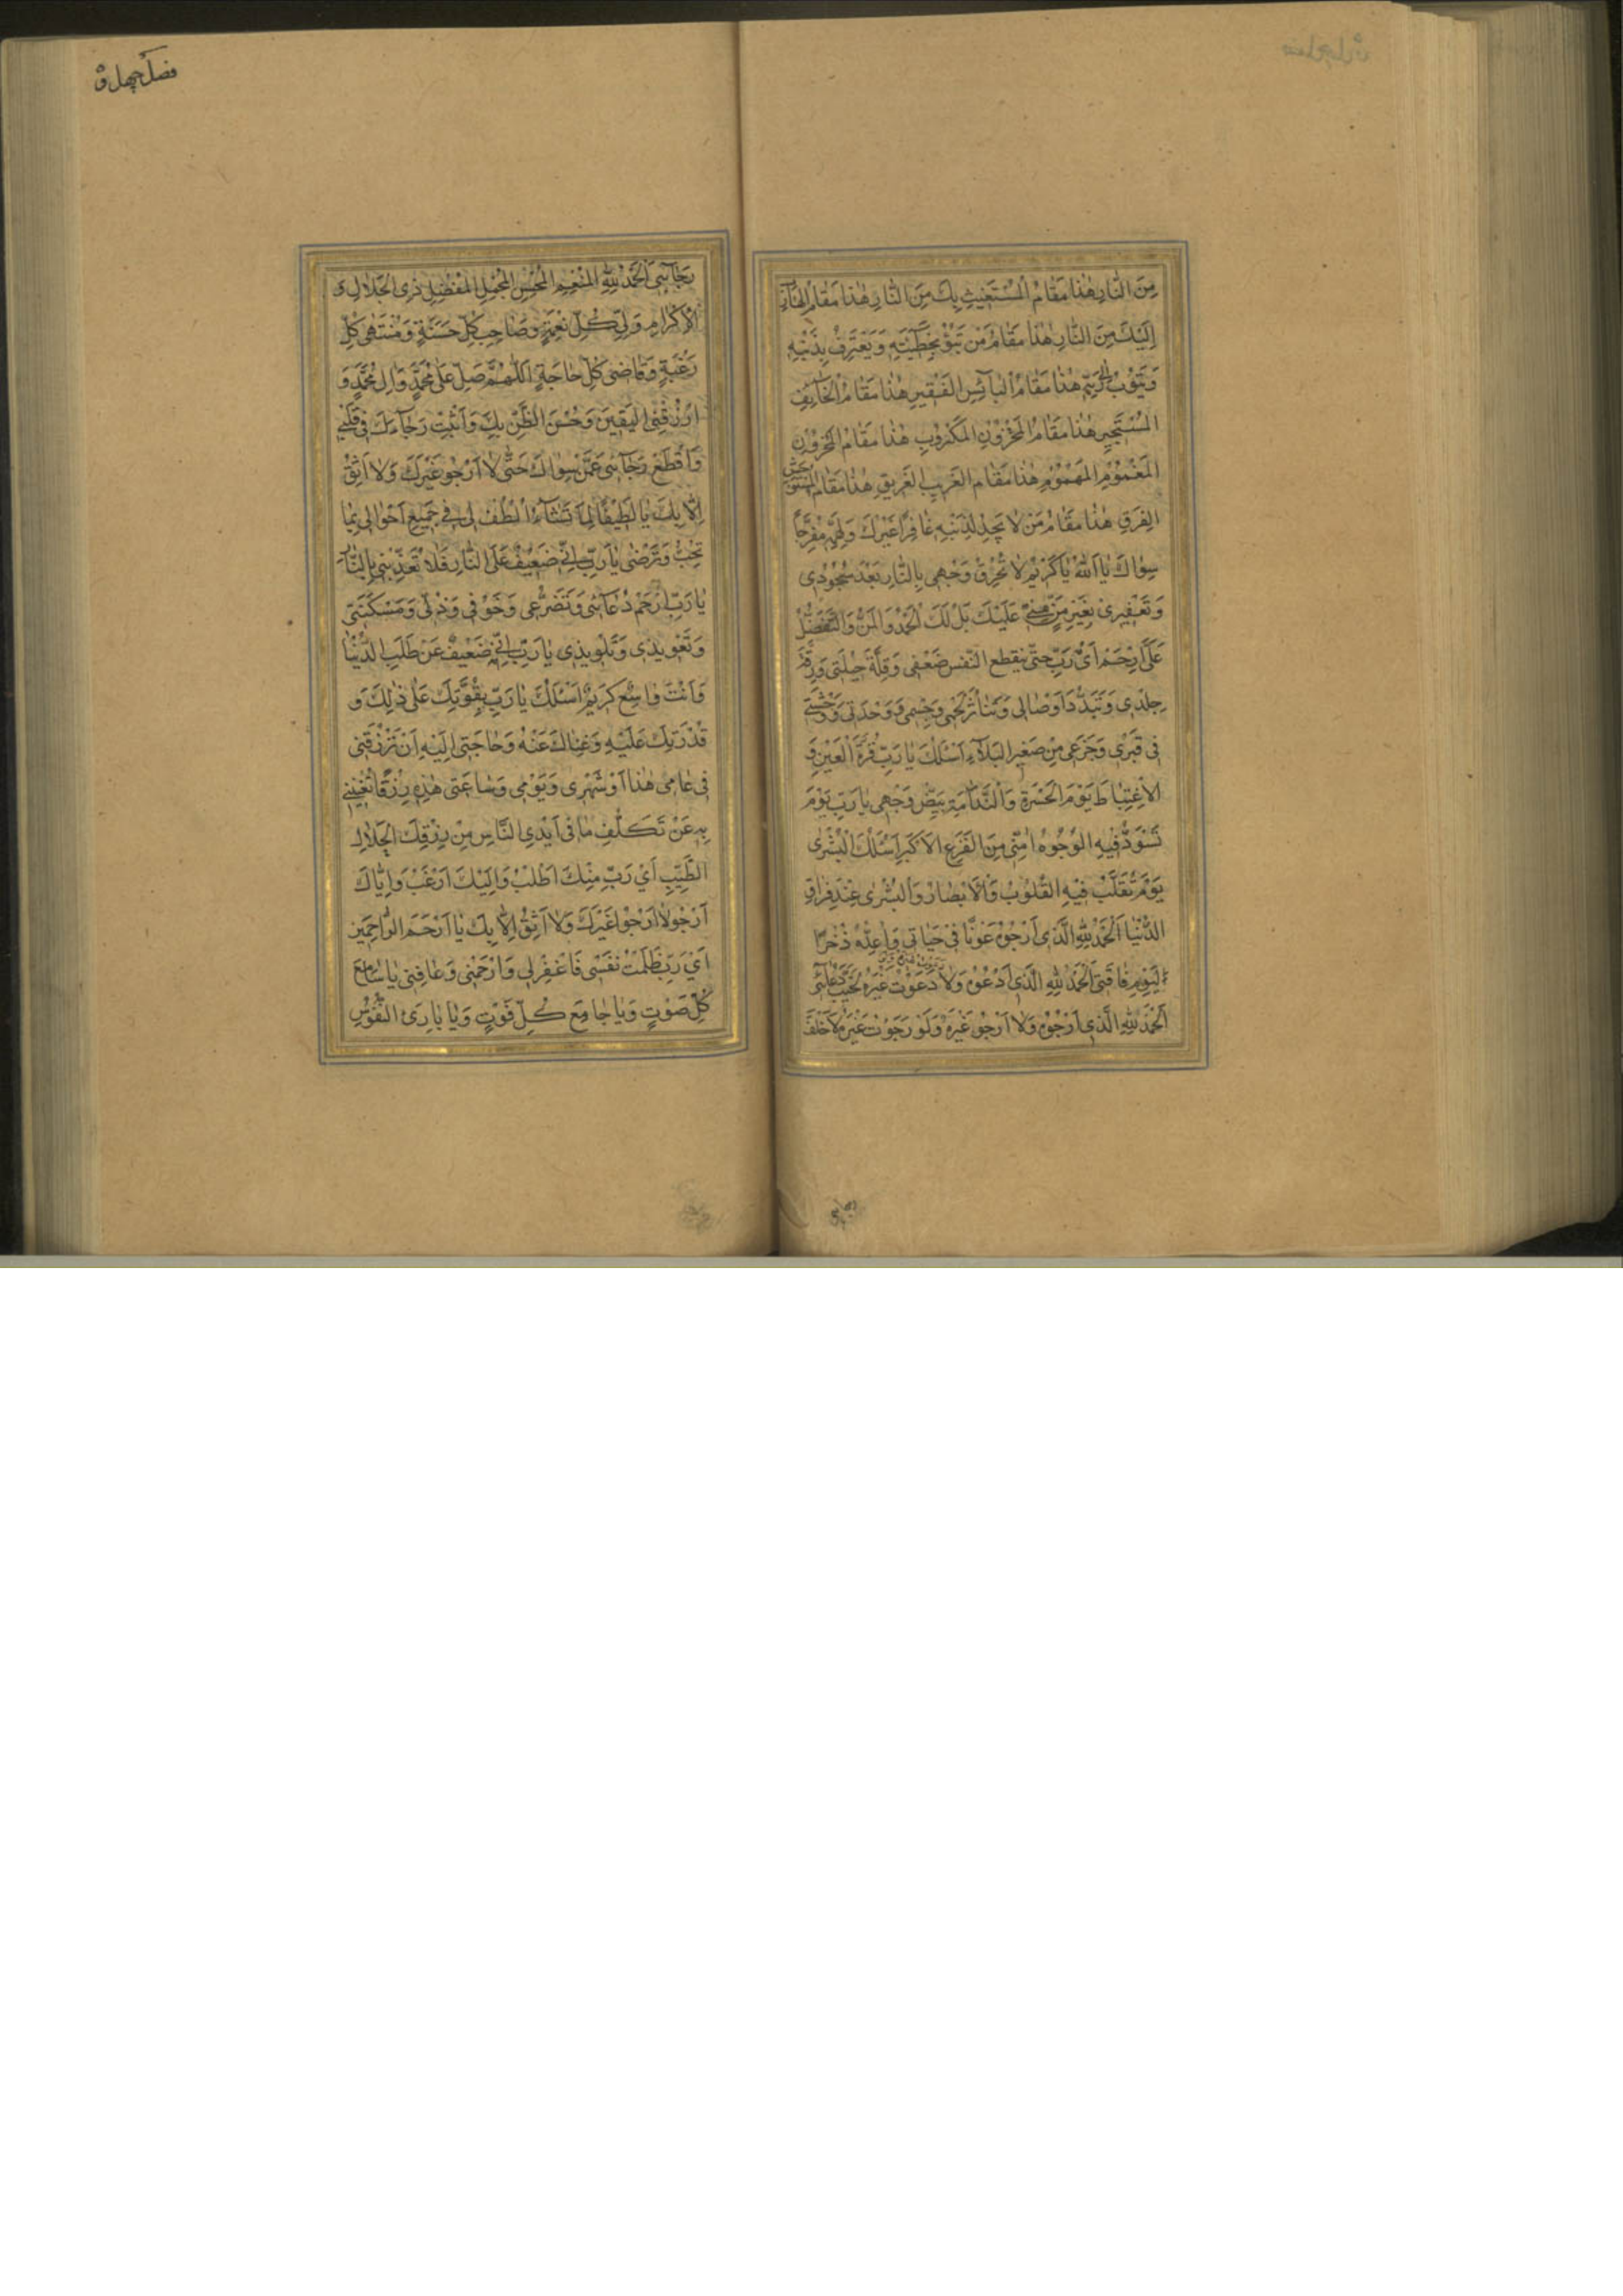 مِنَ النَّارِ هٰذَا مَقَامُ الْمُسْتَغِيثِ بِكَ مِنَ النَّارِ هٰذَا مَقَامُ الْهَارِبِ
اِلَيْكَ مِنَ النَّارِ هٰذَا مَقَامُ مَنْ يَبُوءُ بِخَطِيئَتِهِ وَيَعْتَرِفُ بِذَنْبِهِ
وَيَتُوبُ اِلٰى رَبِّهِ هٰذَا مَقَامُ الْبَآئِسِ الْفَقِيرِ هٰذَا مَقَامُ الْخَآئِفِ
الْمُسْتَجِيرِ هٰذَا مَقَامُ الْمَحْزُونِ الْمَكْرُوبِ هٰذَا مَقَامُ الْمَحْزُونِ
الْمَغْمُومِ الْمَهْمُومِ هٰذَا مَقَامُ الْغَرِيبِ الْغَرِيقِ هٰذَا مَقَامُ الْمُسْتَوْحِشِ
الْفَرِقِ هٰذَا مَقَامُ مَنْ لَا يَجِدُ لِذَنْبِهِ غَافِرًا غَيْرَكَ وَلِهَمِّهِ مُفَرِّجًا
سِوَاكَ يَا اَللّٰهُ يَا كَرِيمُ لَا تُحْرِقْ وَجْهِي بِالنَّارِ بَعْدَ سُجُودِي
وَتَعْفِيرِي بِغَيْرِ مَنٍّ مِنِّي عَلَيْكَ بَلْ لَكَ الْحَمْدُ وَالْمَنُّ وَالتَّفَضُّلُ
عَلَيَّ اِرْحَمْ اَيْ رَبِّ حَتّٰى ينقطع النَّفَس ضَعْفِي وَقِلَّةَ حِيلَتِي وَرِقَّةَ
جِلْدِي وَتَبَدُّدَ اَوْصَالِي وَتَنَاثُرَ لَحْمِي وَجِسْمِي وَوَحْدَتِي وَوَحْشَتِي
فِي قَبْرِي وَجَزَعِي مِنْ صَغِيرِ الْبَلَاءِ اَسْئَلُكَ يَا رَبِّ قُرَّةَ الْعَيْنِ وَ
الْاِغْتِبَاطَ يَوْمَ الْحَسْرَةِ وَالنَّدَامَةِ بَيِّضْ وَجْهِي يَا رَبِّ يَوْمَ
تَسْوَدُّ فِيهِ الْوُجُوهُ اٰمِنِّي مِنَ الْفَزَعِ الْاَكْبَرِ اَسْئَلُكَ الْبُشْرٰى
يَوْمَ تُقَلَّبُ فِيهِ الْقُلُوبُ وَالْاَبْصَارُ وَالْبُشْرٰى عِنْدَ فِرَاقِ
الدُّنْيَا اَلْحَمْدُ لِلّٰهِ الَّذِي اَرْجُوهُ عَوْنًا فِي حَيَاتِي وَاُعِدُّهُ ذُخْرًا
لِيَوْمِ فَاقَتِي اَلْحَمْدُ لِلّٰهِ الَّذِي اَدْعُوهُ وَلَا دَعَوْتُ غَيْرَهُ لَخَيَّبَ دُعَائِي
اَلْحَمْدُ لِلّٰهِ الَّذِي اَرْجُوهُ وَلَا اَرْجُو غَيْرَهُ وَلَوْ رَجَوْتُ غَيْرَهُ لَاَخْلَفَ
رَجَآئِي اَلْحَمْدُ لِلّٰهِ الْمُنْعِمِ الْمُحْسِنِ الْمُجْمِلِ الْمُفْضِلِ ذِي الْجَلَالِ وَ
الْاِكْرَامِ وَلِيِّ كُلِّ نِعْمَةٍ وَصَاحِبِ كُلِّ حَسَنَةٍ وَمُنْتَهٰى كُلِّ
رَغْبَةٍ وَقَاضِي كُلِّ حَاجَةٍ اَللّٰهُمَّ صَلِّ عَلٰى مُحَمَّدٍ وَاٰلِ مُحَمَّدٍ وَ
ارْزُقْنِي الْيَقِينَ وَحُسْنَ الظَّنِّ بِكَ وَاَثْبِتْ رَجَآءَكَ فِي قَلْبِي
وَاقْطَعْ رَجَآئِي عَمَّنْ سِوَاكَ حَتّٰى لَا اَرْجُو غَيْرَكَ وَلَا اَثِقُ
اِلَّا بِكَ يَا لَطِيفًا لِمَا تَشَآءُ اُلْطُفْ لِي فِي جَمِيعِ اَحْوَالِي بِمَا
تُحِبُّ وَتَرْضٰى يَا رَبِّ اِنِّي ضَعِيفٌ عَلَى النَّارِ فَلَا تُعَذِّبْنِي بِالنَّارِ
يَا رَبِّ ارْحَمْ دُعَآئِي وَتَضَرُّعِي وَخَوْفِي وَذُلِّي وَمَسْكَنَتِي
وَتَعْوِيذِي وَتَلْوِيذِي يَا رَبِّ اِنِّي ضَعِيفٌ عَنْ طَلَبِ الدُّنْيَا
وَاَنْتَ وَاسِعٌ كَرِيمٌ اَسْئَلُكَ يَا رَبِّ بِقُوَّتِكَ عَلٰى ذٰلِكَ وَ
قُدْرَتِكَ عَلَيْهِ وَغِنَاكَ عَنْهُ وَحَاجَتِي اِلَيْهِ اَنْ تَرْزُقَنِي
فِي عَامِي هٰذَا وَشَهْرِي وَيَوْمِي وَسَاعَتِي هٰذِهِ رِزْقًا تُغْنِينِي
بِهِ عَنْ تَكَلُّفِ مَا فِي اَيْدِي النَّاسِ مِنْ رِزْقِكَ الْحَلَالِ
الطَّيِّبِ اَيْ رَبِّ مِنْكَ اَطْلُبُ وَاِلَيْكَ اَرْغَبُ وَاِيَّاكَ
اَرْجُو لَا اَرْجُوا غَيْرَكَ وَلَا اَثِقُ اِلَّا بِكَ يَا اَرْحَمَ الرَّاحِمِينَ
اَيْ رَبِّ ظَلَمْتُ نَفْسِي فَاغْفِرْ لِي وَارْحَمْنِي وَعَافِنِي يَا سَامِعَ
كُلِّ صَوْتٍ وَيَا جَامِعَ كُلِّ فَوْتٍ وَيَا بَارِئَ النُّفُوسِ